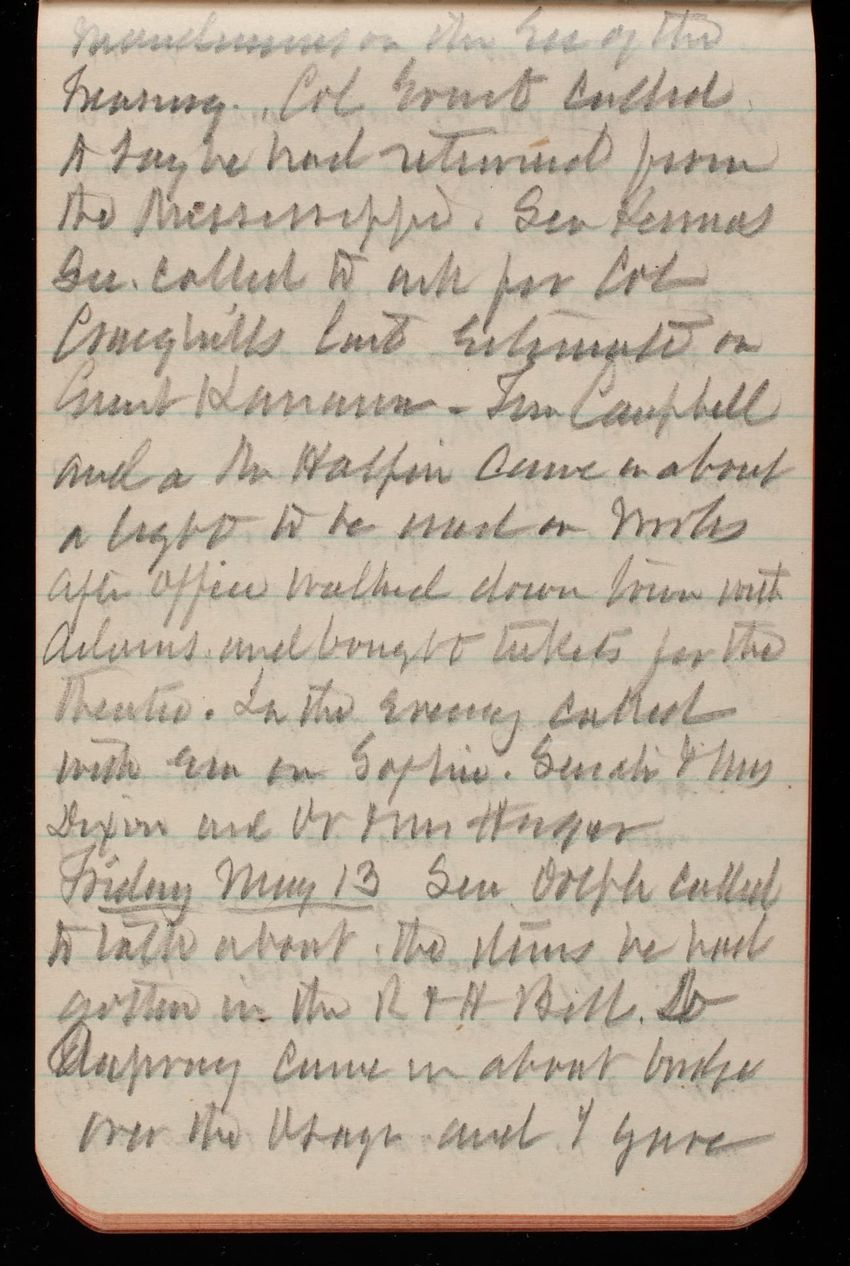 on the Sec of the
Treasury. Col Ernst called
to say he had returned from
the Mississippi. Gen Kennas
Sec. called to ask for Col
Craighills last Estimate on
Great Kanawa - Tim Campbell
and a Mr Halpin came in about
a light to be used on
After office walked down town with
Adams and bought tickets for the
theatre. In the Evening called
with Em on Sophie. Senator & Mrs
Dixon and Dr & Mrs
Friday May 13 Sen Dolph called
to talk about the items he had
gotten in the R & H Bill.
came in about bridge
over the Osage and I gave